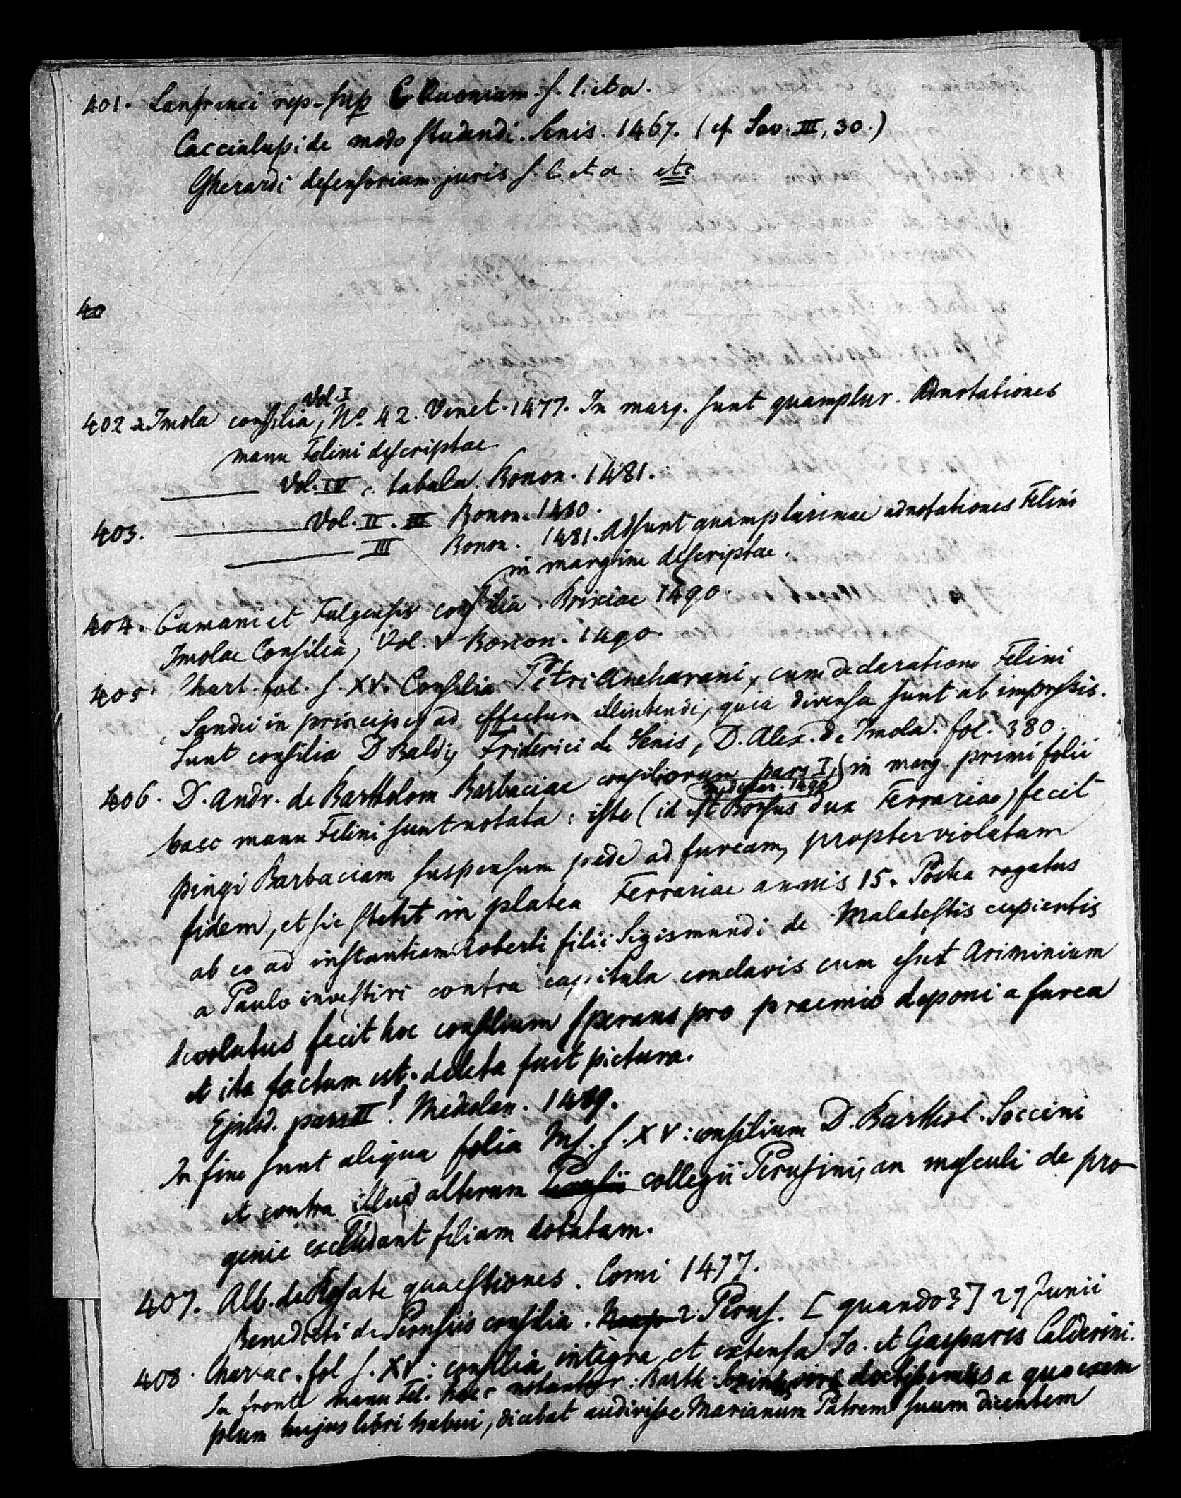 401. Lanfranci rep. sup C Quoniam. s. l. et a.
Caccialupi de modo studendi. Senis. 1467. (cf Sav. III, 30.)
Gherardi defensorium juris s. l. et a etc
40
Vol. I
402 Imola consilia, No 42. Venet. 1477. In marg. sunt quamplur. Annotationes
manu Felini descriptae
Vol. IV c. tabula. Bonon. 1481.
403. Vol. II. III Bonon. 1480.
III Bonon. 1481. Adsunt quamplurimae adnotationes Felini
in margine descriptae.
404. Cumani et Fulgensis consilia. Brixiae 1490.
Imolae Consilia, Vol. V Bonon. 1490.
405. Chart. fol. s. XV. Consilia Petri Ancharani, cum declaratione Felini
Sandei in principio ad effectum, quia diversa sunt ab impressis.
Sunt consilia D Baldi, Friderici de Senis, D. Alex. de Imola. fol. 380.
406. D. Andr. de Bartholom Barbaciae consiliorum pars I, in marg. primi folii
Mediolan. 1490
haec manu Felini sunt notata: iste (id est Borsus dux Ferrariae) fecit
pingi Barbaciam suspensum pede ad furcam, propter violatam
fidem, et sic stetit in platea Ferrariae annis 15. Postea rogatus
ab eo ad instantiam Roberti filii Sigismundi de Malatestis cupientis
a Paulo investiri contra capitula conclavis cum esset Ariminium
devolutus fecit hoc consilium sperans pro praemio deponi a furca
et ita factum est. deleta fuit pictura.
Ejusd. pars II. Mediolan. 1489.
In fine sunt aliqua folia Ms. s. XV: consilium D. Barthol. Soccini
et contra illud alterum collegii Perusini, an masculi de pro-
genie excludant filiam dotatam.
407. Alb. de Rosate quaestiones. Comi 1477.
Benedicti de Perusiis consilia. 2. Perus. [quando?] 27 Junii
408. Charac. fol s. XV: consilia integra et extensa Jo. et Gasparis Calderini.
In fronte manu Fel. haec notantur. Barth. Socinus a quo exem
plum hujus libri habui, dicebat audivisse Marianum Patrem suum dicentem